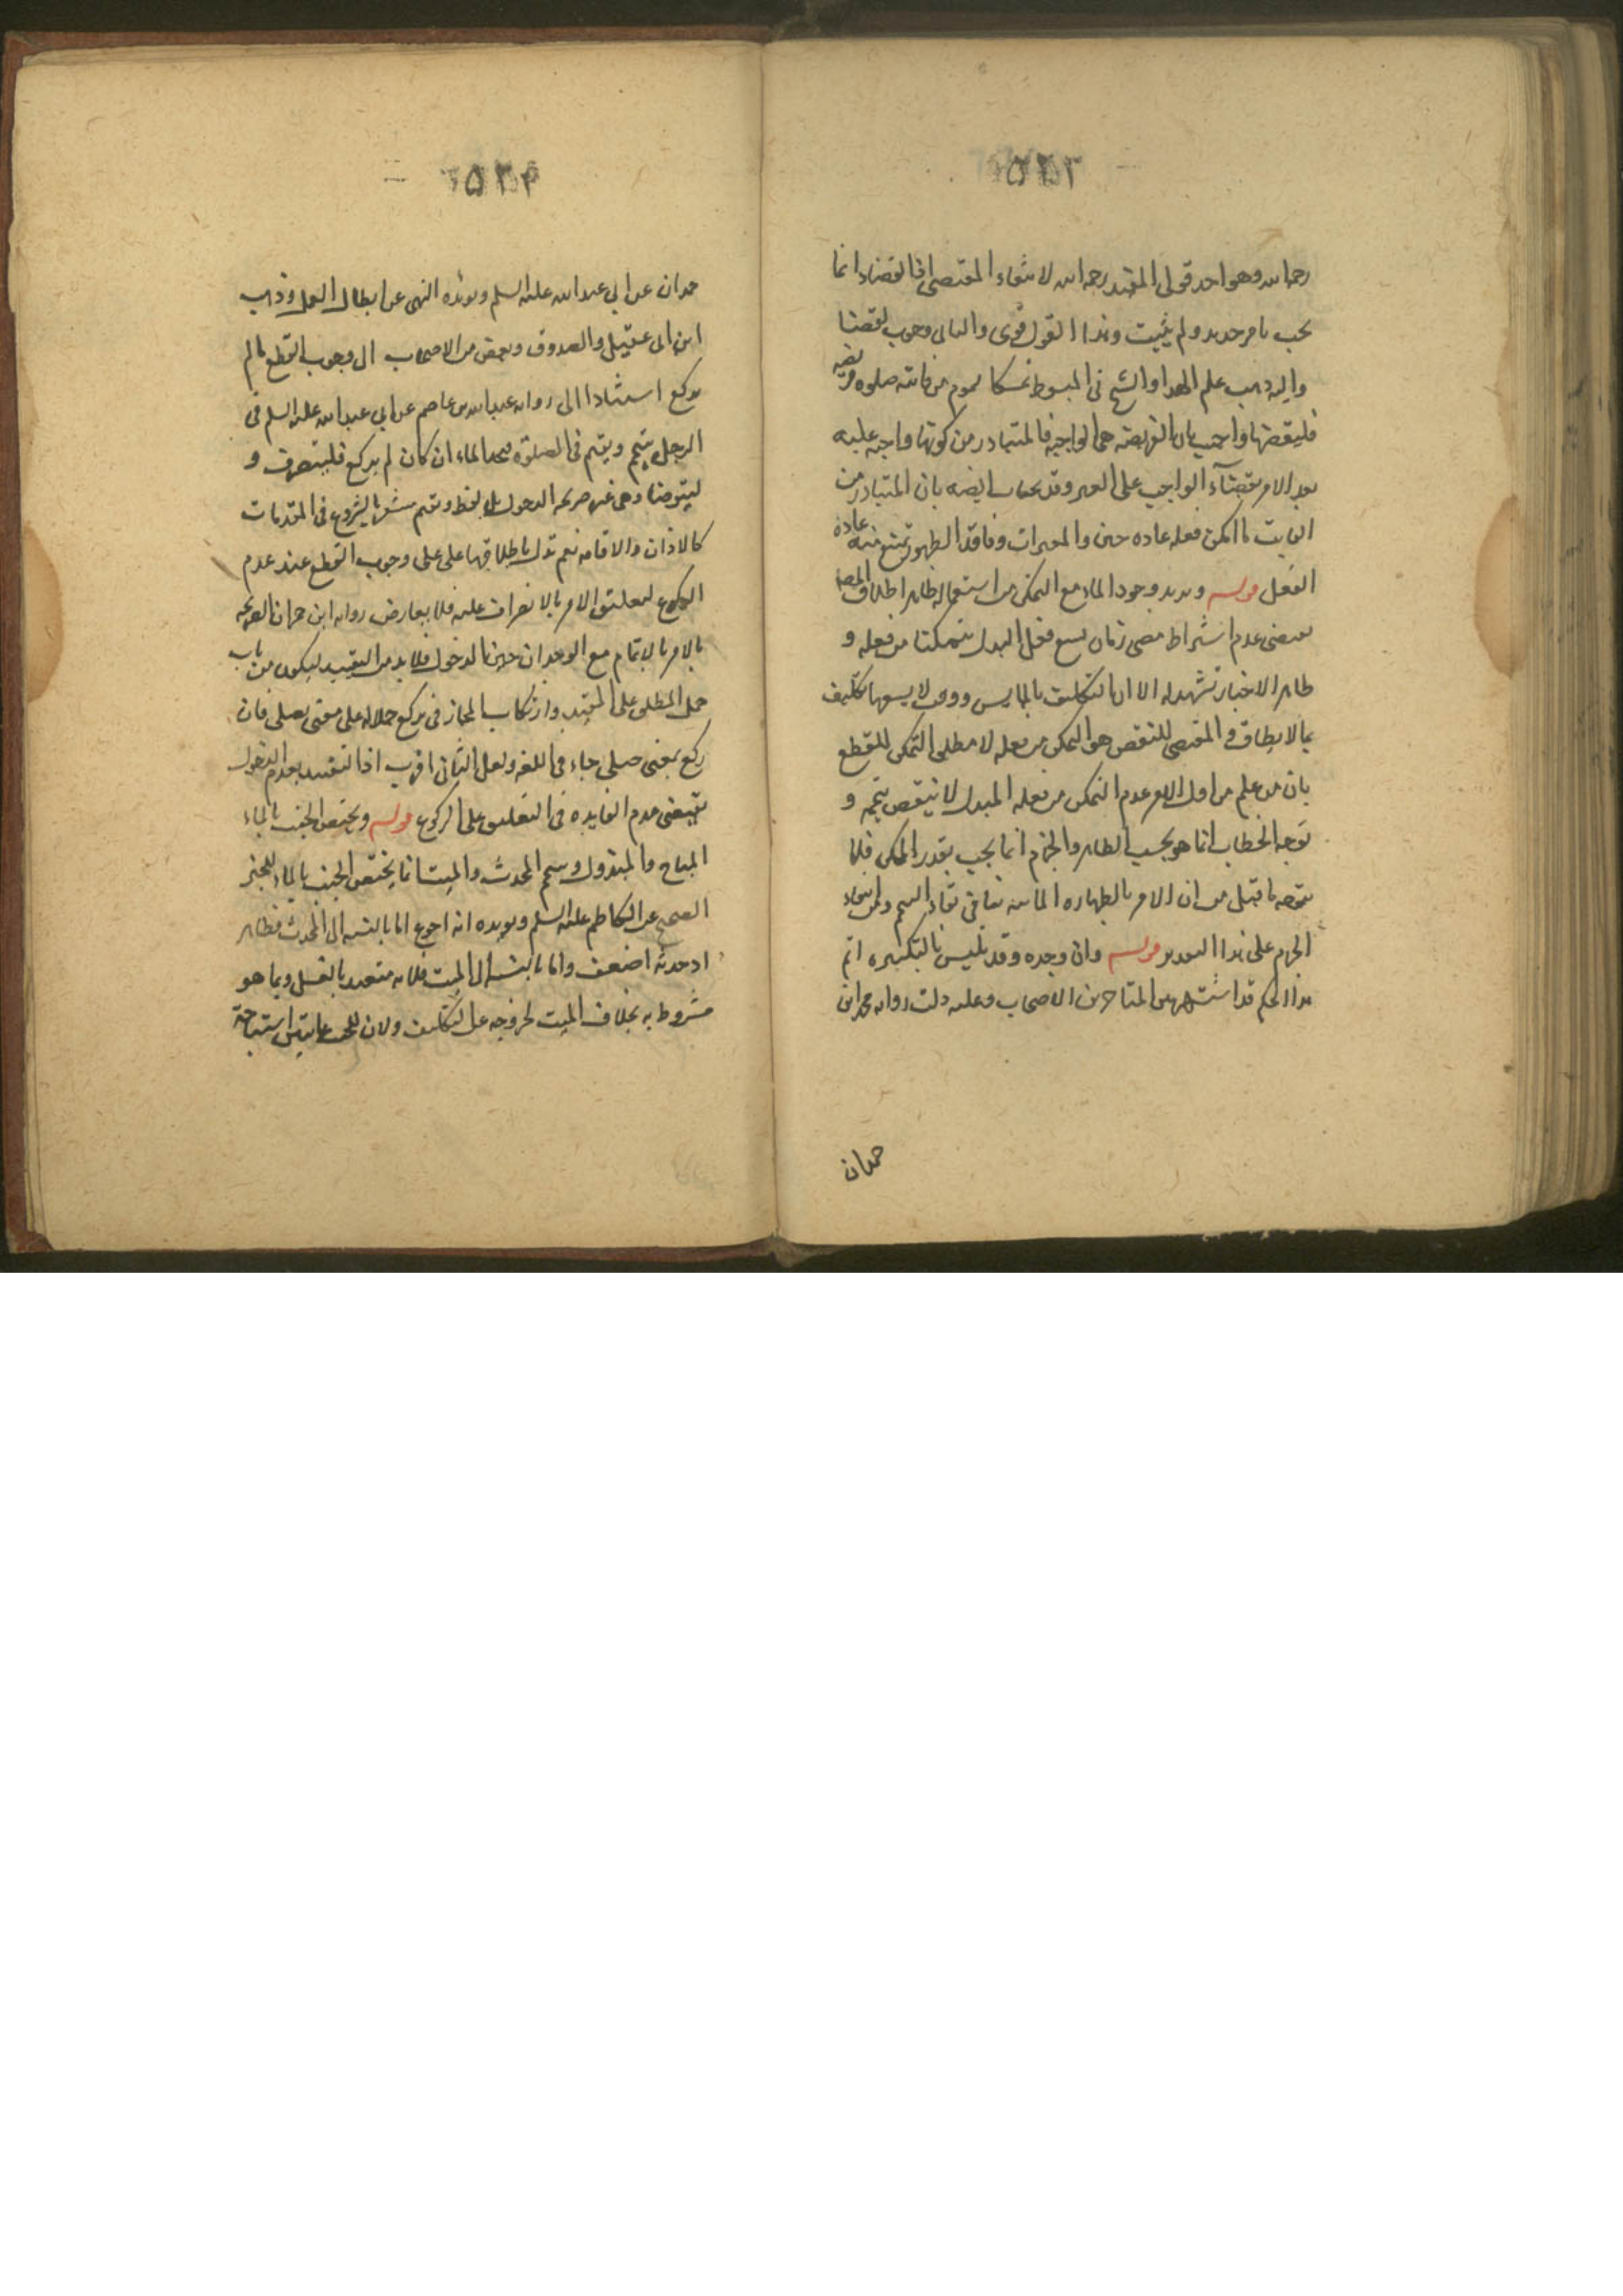 ٥٢٣
رحمه الله وهو احد قولى المفيد رحمه الله لانتفاء المقتضى اذ القضاء انما
يجب بامر جديد ولم يثبت وهذا القول قوى والثانى وجوب القضا
واليه ذهب علم الهدا والشيخ فى المبسوط تمسكا لعموم من فاتته صلوه فريضه
فليقضها واجيب بان الفريضه هى الواجبة فالمتبادر من كونها واجبه عليه
بعد الامر بقضاء الواجب على الغير وقد يجاب ايضه بان المتبادر من
الفايت ما امكن فعله عاده حين والمعبرات وفاقد الطهور يمتنع منه عادة
الفعل قوله ويريد وجود الماء مع التمكن من استعماله ظاهر اطلاق المصا
يقتضى عدم اشتراط مضى زمان يسع فعل المبدل متمكنا من فعله و
ظاهر الاخبار تشهد له الا ان التكليف بالمايين ووقت لا يسعها تكليف
بما لا يطاق والمقتضى للنقض هو التمكن من فعله لا مطلق التمكن للقطع
بان من علم من اول الامر عدم التمكن من فعله المبدل لا ينتقض تيممه و
توجه الخطاب انما هو بحسب الظاهر والجزم انما يجب بقدر الممكن فلا
يتوجه ما قيل من ان الامر بالطهاره المائيه ينافى بقاء التيمم وامتناع
الجزم على هذا التقدير قوله وان وجده وقد تلبس بالتكبيره اتم
هذا الحكم قد اشتهر بين المتاخرين الاصحاب وعليه دلت روايه محمد ابن
حمران
٥٢٤
حمران عن ابي عبد الله عليه السلم ويؤيده النهى عن ابطال العمل وذهب
ابن ابى عقيل والصدوق وبعض من الاصحاب الى وجوب القطع ما لم
يركع استنادا الى روايه عبد الله بن عاصم عن ابي عبد الله عليه السلم فى
الرجل يتيمم ويقيم فى الصلوة فيجد الماء ان كان لم يركع فلينصرف و
ليتوضا وهى غير صريحه الدخول بل لفظ ويقيم مشعر بالشروع فى المقدمات
كالاذان والاقامه نعم تدل باطلاقها على على وجوب القطع عند عدم
الركوع لتعليق الامر بالانصراف عليه فلا يعارض روايه ابن حمران الصريحه
بالامر بالاتمام مع الوجدان حين الدخول فلا بد من التقييد ليكون من باب
حمل المطلق على المقيد وارتكاب المجاز فى يركع حملا له على معنى يصلى فان
ركع بمعنى صلى جاء فى اللغه ولعل الثانى اقرب اذ التقييد بعدم الدخول
يقتضى عدم الفايده فى التعليق على الركوع قوله ويختص الجنب بالماء
المباح والمبذول وييمم المحدث والميت انما يختص الجنب بالماء للخبر
الصحيح عن الكاظم عليه السلم ويؤيده انه احوج اما بالنسبه الى المحدث فظاهر
اذ حدثه اضعف واما بالنسبه الى الميت فلانه متعبد بالغسل وبما هو
مشروط به بخلاف الميت لخروجه عن التكليف ولان للجنب غايتين استباحة